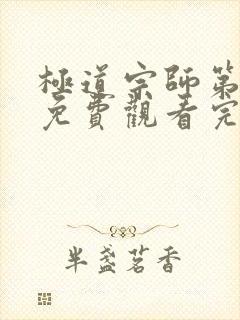 極道宗師第
免費觀看完
半盞茗香